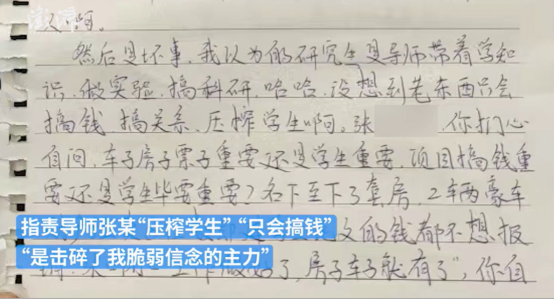 人啊。
然后是坏事,我以为的研究生是导师带着学知
识、做实验、搞科研,哈哈,没想到老东西只会
搞钱、搞关系、压榨学生啊。张 你扪心
自问,车子房子票子重要还是学生重要,项目搞钱重
要还是学生毕要重要?名下至下了套房,2车两豪车
指责导师张某“压榨学生”“只会搞钱”
文的钱都不想报
“是击碎了我脆弱信念的主力”
了,房子车子就有了”,你自